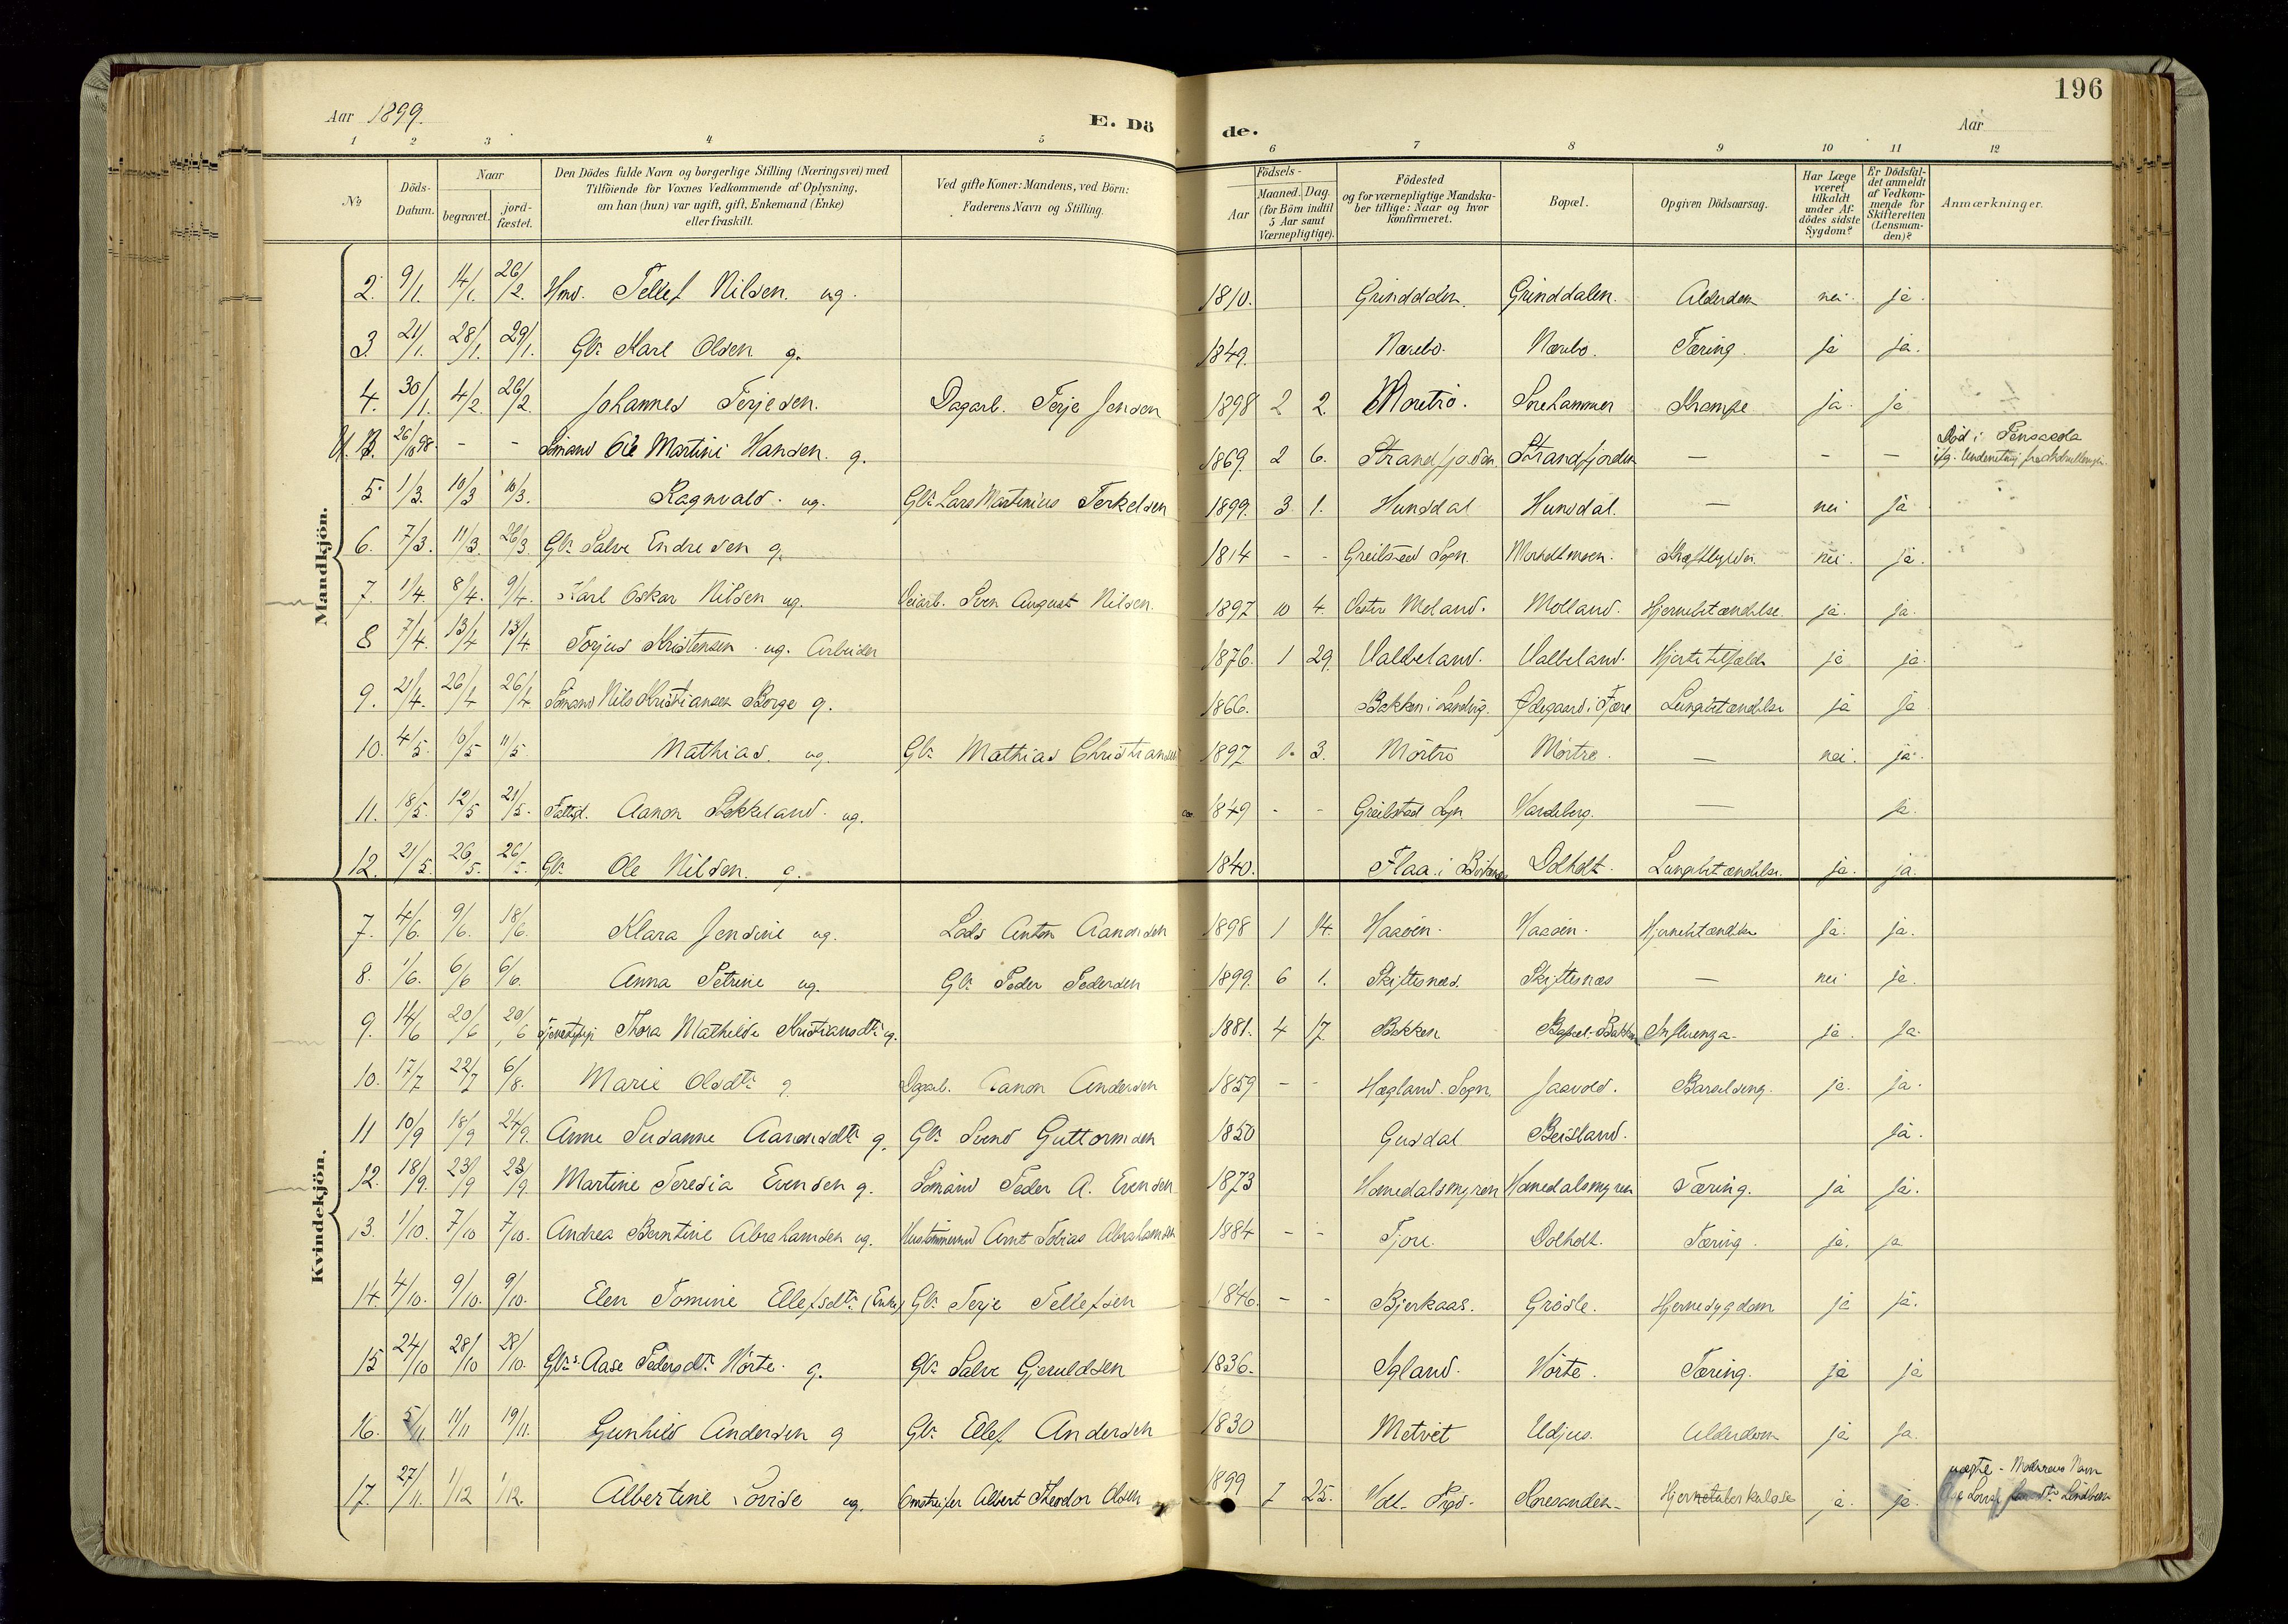 196
Aar 1899.
E. Dö
de.
Aar
1 2 3 4 5 6 7 8 9 10 11 12
№
Döds-Datum.
Naar
begravet.
jord-fæstet.
Den Dödes fulde Navn og borgerlige Stilling (Næringsvei) med
Tilföiende for Voxnes Vedkommende af Oplysning,
om han (hun) var ugift, gift, Enkemand (Enke)
eller fraskilt.
Ved gifte Koner: Mandens, ved Börn:
Faderens Navn og Stilling.
Födsels-
Aar
Maaned. Dag.
(for Börn indtil
5 Aar samt
Værnepligtige).
Födested
og for værnepligtige Mandska-
ber tillige: Naar og hvor
konfirmeret.
Bopæl.
Opgiven Dödsaarsag.
Har Læge
været
tilkaldt
under Af-
dödes sidste
Sygdom?
Er Dödsfal-
det anmeldt
af Vedkom-
mende for
Skifteretten
(Lensman-
den)?
Anmærkninger.
Mandkjön.
2. 9/1. 14/1. 26/2. Tellef Nilsen. ug. 1810. Grinddalen. Grinddalen. Alderdom nei. ja.
3. 21/1. 28/1. 29/1. Gbr. Karl Olsen g. 1849. Nærebo. Nærebo. Tæring. ja ja.
4. 30/1. 4/2. 26/2. Johannes Terjesen. Dagarb. Terje Jensen 1898 2 2 Moretrö. Krampe ja ja
N.B. 26/10 98. - - Sömand Ole Martin Hansen. g. 1869. 2 6. Strandfjorden Strandfjorden — - — Död i Pensacola
5. 1/3. 10/3 10/3. Ragnvald. ug. Gbr. Lars Martinius Terkelsen 1899. 3. 1. Hunsdal Hunsdal. — nei ja
6. 7/3. 11/3. 26/3. Gbr. Salve Endresen g. 1814 - - Sogn. nei. ja.
7. 1/4. 8/4. 9/4. Karl Oskar Nilsen ug. Veiarb. Sven August Nilsen. 1897 10 4. Vester Moland. Molland. Hjernebetændelse. ja. ja.
8 7/4. 13/4 13/4. Torjus Kristensen ug. Arbeider 1876. 1 29. Valbeland. Valbeland. ja ja.
9. 21/4. 26/4 26/4. Sömand Nils Kristiansen Borge g. 1866. Bakken i Landvig. Ödegaard i Fjære Lungebetændelse ja ja
10. 4/5. 10/5 11/5. Mathias. ug. Gbr. Mathias Christiansen 1897 3. Mörtrö Mörtrö. — nei. ja.
11. 18/5. 12/5 21/5. Aanon ug. 1849 - - Sogn. Vardeberg. — ja.
12. 21/5. 26/5. 26/5. Gbr. Ole Nilsen. g. 1840. Flaa i Dolholt. Lungebetændelse. ja. ja.
Kvindekjön.
7. 4/6. 9/6. 18/6. Klara Jensine ug. Lods Anton Aanonsen 1898 1 14. Haaöen. Haaöen. Hjernebetændelse ja. ja.
8. 1/6. 6/6 6/6. Anna Petrine ug. Gbr. Peder Pedersen 1899. 6 1. Skiftesnæs. Skiftesnæs — nei ja.
9. 14/6 20/6 20/6 Thora Mathilde Kristiansdtr. ug. 1881. 4 17. Bakken Bakken Influenza. ja. ja.
10. 17/7 22/7 6/8. Marie Olsdtr. g. Dagarb. Aanon Andersen 1859 - - Hægland. Sogn. Jaavold. Barselseng. ja. ja.
11 10/9 18/9 24/9. Anne Susanne Aanonsdtr. g. Gbr. Svend Guttormsen 1850 Gusdal Beisland. ja.
12. 18/9. 23/9 23/9 Martine Teresia Evensen g. Sömand Peder A. Evensen 1873 Homedalsmyren Homedalsmyren Tæring. ja ja.
13. 1/10. 7/10 7/10. Andrea Berntine Abrahamsen ug. Hustömmermd Arnt Tobias Abrahamsen 1884 - - Fjære. Dolholt. Tæring. ja. ja
14. 4/10. 9/10. 9/10. Elen Tomine Ellefsdtr. (Enke) Gbr. Terje Tellefsen 1846. - - Bjerkaas. Grösle. Hjernesygdom ja ja.
15 24/10 28/10 28/10. Gbrs. Aase Pedersdtr. Hörte. g. Gbr. Salve Gjeruldsen 1836. Igland. Hörte. Tæring. ja ja
16. 5/11. 11/11 19/11. Gunhild Andersen g Gbr. Ellef Andersen 1830 Metvet Udjus. Alderdom ja ja.
17. 27/11. 1/12 1/12. Albertine Lovise ug. Omstreifer Albert Theodor Olsen 1899 7 25. Hjernetuberkulose ja. ja. uægte - Moderens Navn